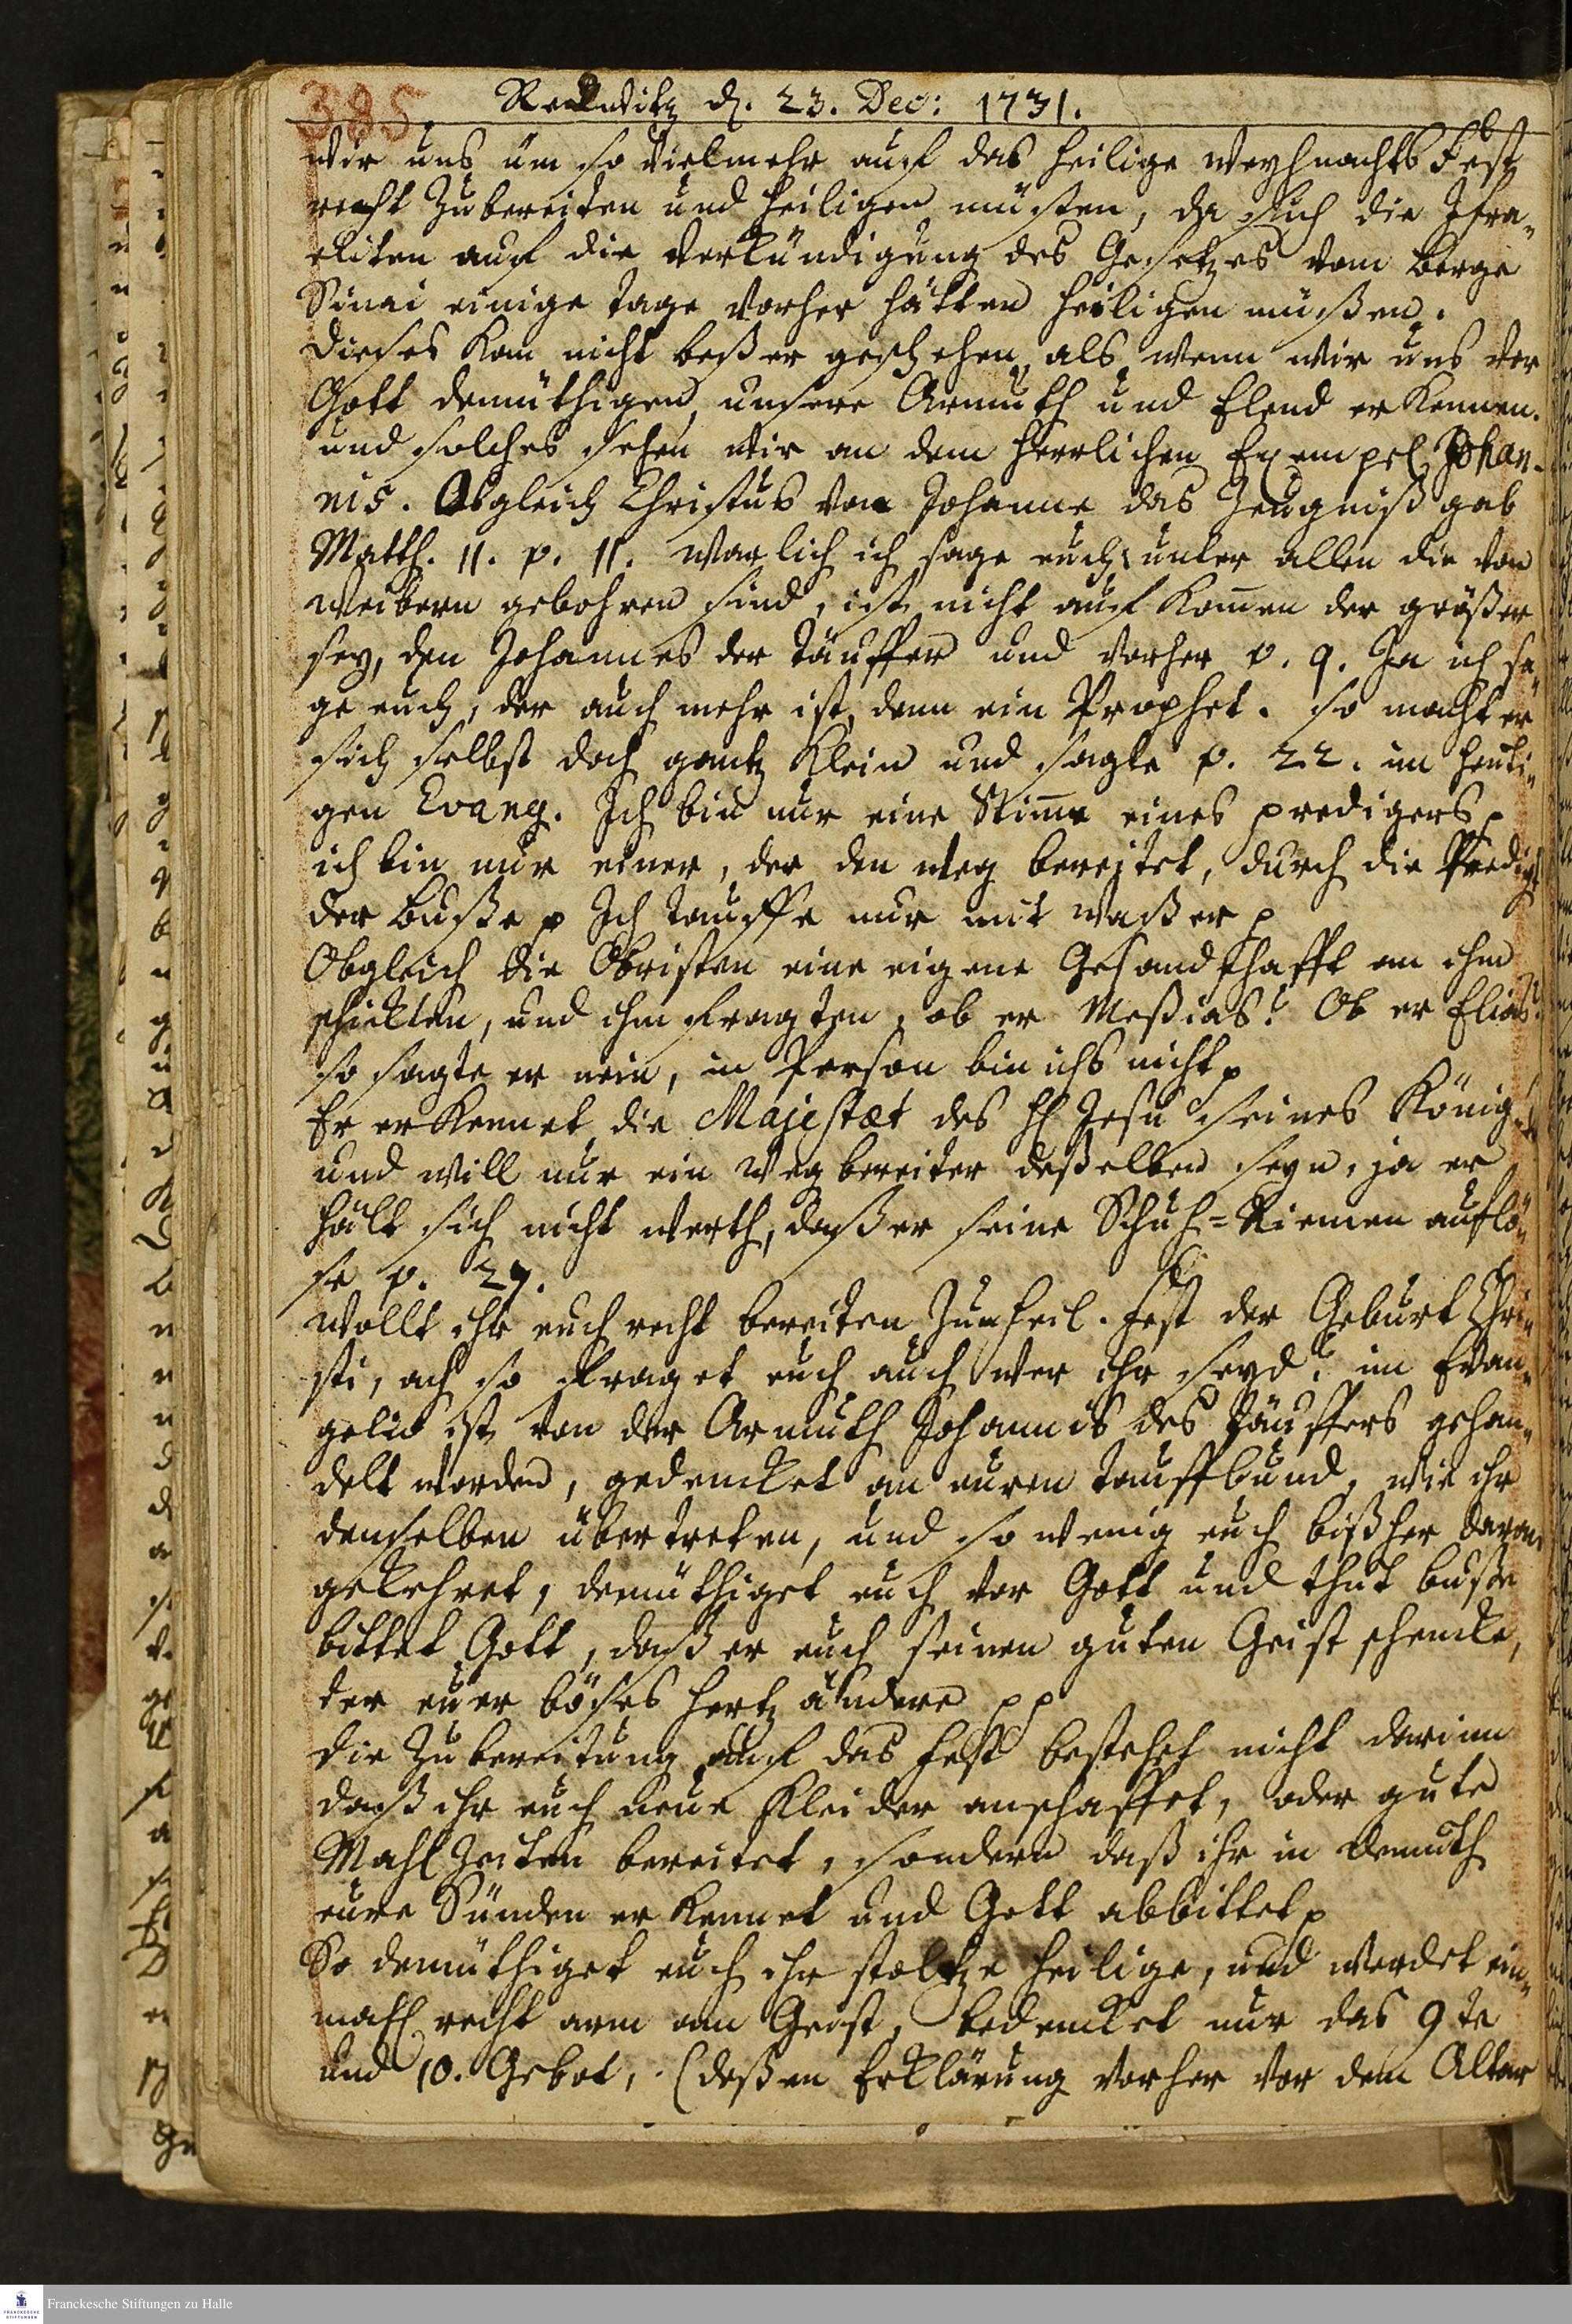 385. Recknitz d. 23. Dec: 1731.
wir uns üm so vielmehr auf das heilige Weyhnachts Fest
recht Zubereiten und heiligen müsten, da sich die Isra-
eliten auf die Verkündigung des Gesetzes vom Berge
Sinai einige Tage vorher hätten heiligen müßen.
Dieses kan nicht beßer geschehen, als wenn wir uns vor
Gott demüthigen, unsere Armuth und Elend erkennen.
und solches sehen wir an dem herrlichen Exempel Johan-
nis. Obgleich Christus von Johanne das Zeugniß gab
Matth. 11. v. 11. Warlich ich sage euch, unter allen die von
Weibern gebohren sind, ist nicht auf kom̄en der größer
sey, den Johannes der Täuffer und vorher v. 9. Ja ich sa-
ge euch, der auch mehr ist, denn ein Prophet. so macht er
sich selbst doch gantz klein und sagte v. 22. im heuti-
gen Evang. Ich bin nur eine Stim̄e eines predigers p
ich bin nur einer, der den Weg bereitet, durch die Predigt
der Buße p Ich tauffe nur mit Waßer p
Obgleich die Obristen eine eigene Gesandschafft an ihm
schickten, und ihm fragten, ob er Meßias? Ob er Elias?
so sagte er nein, in Person bin ichs nicht p
Er erkennet die Majestæt des H Jesu seines Königs
und will nur ein Wegbereiter deßelben seyn, ja er
hält sich nicht werth, daß er seine Schuh-Riemen auflö-
se v. 27.
Wollt ihr euch recht bereiten Zum heil. Fest der Geburt Chri-
sti, ach so fraget euch auch wer ihr seyd? im Evan-
gelio ist von der Armuth Johannis des Täuffers gehan-
delt worden, gedencket an euren Tauffbund, wie ihr
denselben übertreten, und so wenig euch bißher daran
gekehret, demüthiget euch vor Gott und thut buße
bittet Gott, daß er euch seinen guten Geist schencke,
der euer böses Hertz ändere p p
Die Zubereitung auf das Fest bestehet nicht darinn
daß ihr euch neue Kleider anschaffet, oder gute
Mahl Zeiten bereitet, sondern daß ihr in Demuth
eure Sünden erkennet und Gott abbittet p
So demüthiget euch ihr stoltze Heilige, und werdet ein-
mahl recht arm am Geist, bedencket nur das 9te
und 10. Gebot, (deßen Erklärung vorher vor dem Altar
Franckesche Stiftungen zu Halle